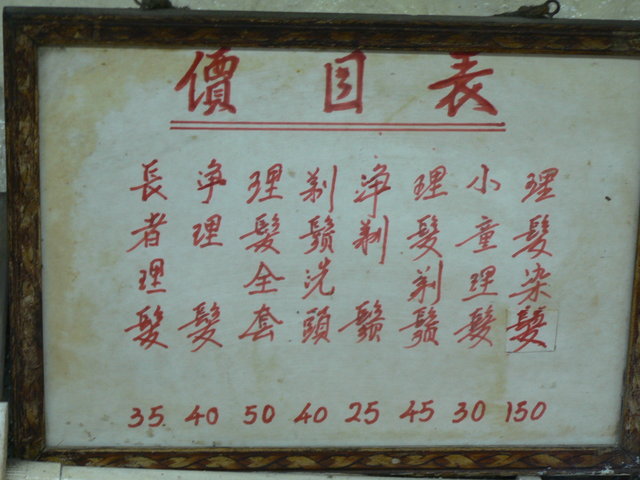 價目表
長者理髮 35
淨理髮 40
理髮全套 50
剃鬚洗頭 40
淨剃鬚 25
理髮剃鬚 45
小童理髮 30
理髮染髮 150